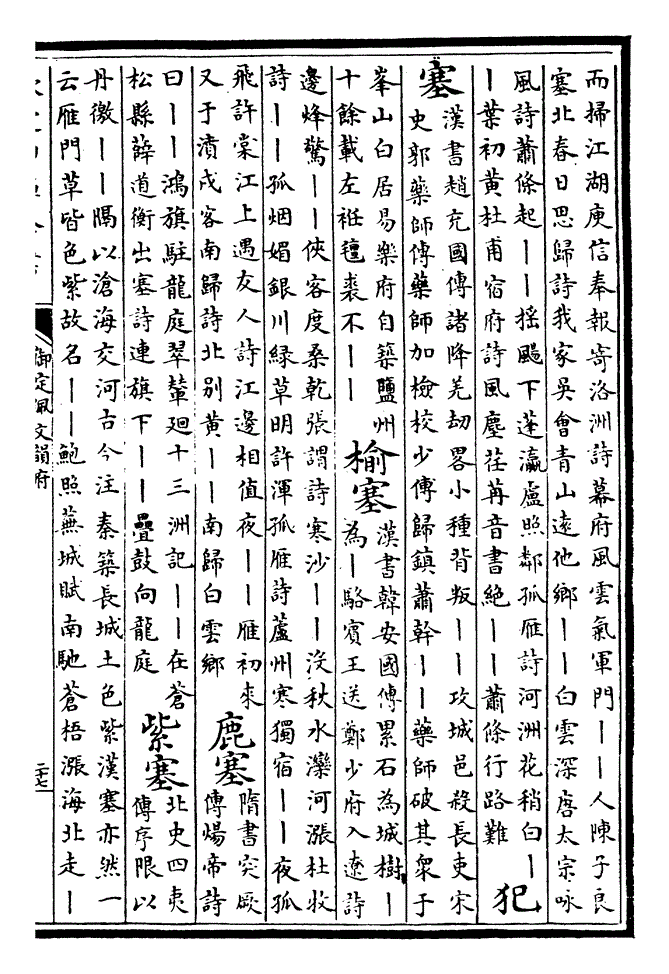 而掃江湖庾信奉報寄洛洲詩幕府風雲氣軍門丨丨人陳子良
塞北春日思歸詩我家吳會青山遠他鄉丨丨白雲深唐太宗咏
風詩蕭條起丨丨搖颺下蓬瀛盧照鄰孤雁詩河洲花稍白丨
丨葉初黃杜甫宿府詩風塵荏苒音書絶丨丨蕭條行路難
犯
塞
漢書趙充國傳諸降羌劫畧小種背叛丨丨攻城邑殺長吏宋
史郭藥師傳藥師加檢校少傳歸鎮蕭幹丨丨藥師破其衆于
峯山白居易樂府自築鹽州
十餘載左袵氊裘不丨丨
榆塞
漢書韓安國傳累石為城樹丨
為丨駱賓王送鄭少府入遼詩
邊烽驚丨丨俠客度桑乾張謂詩寒沙丨丨没秋水灤河漲杜牧
詩丨丨孤烟媚銀川緑草明許渾孤雁詩蘆州寒獨宿丨丨夜孤
飛許棠江上遇友人詩江邊相值夜丨丨雁初來
又于濆戍客南歸詩北别黄丨丨南歸白雲鄉
鹿塞
隋書突厥
傳煬帝詩
曰丨丨鴻旗駐龍庭翠輦廻十三洲記丨丨在蒼
松縣薛道衡出塞詩連旗下丨丨疊鼓向龍庭
紫塞
北史四夷
傳序限以
丹徼丨丨隔以滄海交河古今注秦築長城土色紫漢塞亦然一
云雁門草皆色紫故名丨丨鮑照蕪城賦南馳蒼梧漲海北走丨
御定佩文韻府
二十七